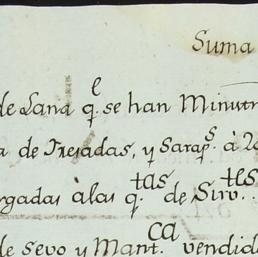 Suma
de Lana q.e se han Minutn
a de Tresadas, y Sarap.s à 2
rgadas à las q.tas de Sirv.tes
de Sevo y Mant.ca vendid